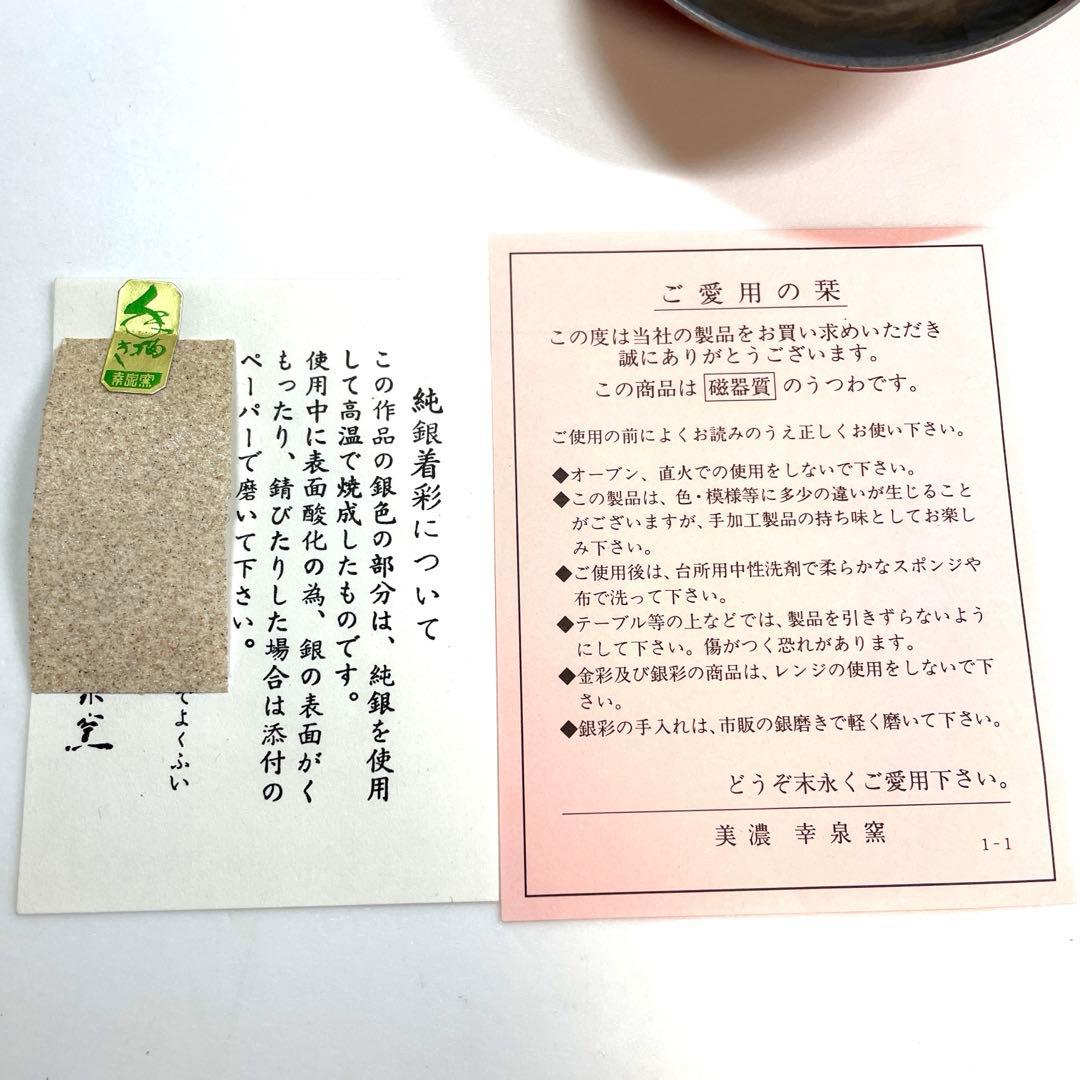 純銀着彩について
この作品の銀色の部分は、純銀を使用
して高温で焼成したものです。
使用中に表面酸化の為、銀の表面がく
もったり、錆びたりした場合は添付の
ペーパーで磨いて下さい。
てよくふい
泉窯
手描き
幸泉窯
ご愛用の栞
この度は当社の製品をお買い求めいただき
誠にありがとうございます。
この商品は 磁器質 のうつわです。
ご使用の前によくお読みのうえ正しくお使い下さい。
◆オーブン、直火での使用をしないで下さい。
◆この製品は、色・模様等に多少の違いが生じること
がございますが、手加工製品の持ち味としてお楽し
み下さい。
◆ご使用後は、台所用中性洗剤で柔らかなスポンジや
布で洗って下さい。
◆テーブル等の上などでは、製品を引きずらないよう
にして下さい。傷がつく恐れがあります。
◆金彩及び銀彩の商品は、レンジの使用をしないで下
さい。
◆銀彩の手入れは、市販の銀磨きで軽く磨いて下さい。
どうぞ末永くご愛用下さい。
美濃 幸泉窯
1-1